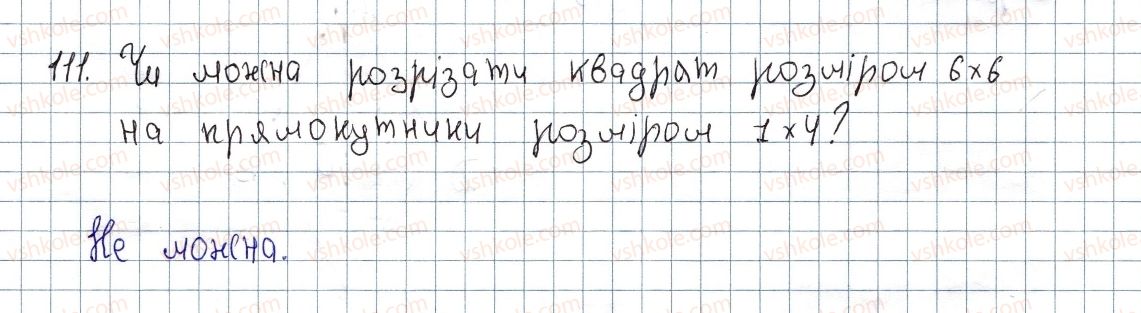 111. Чи можна розрізати квадрат розміром 6×6
на прямокутники розміром 1×4?
Не можна.